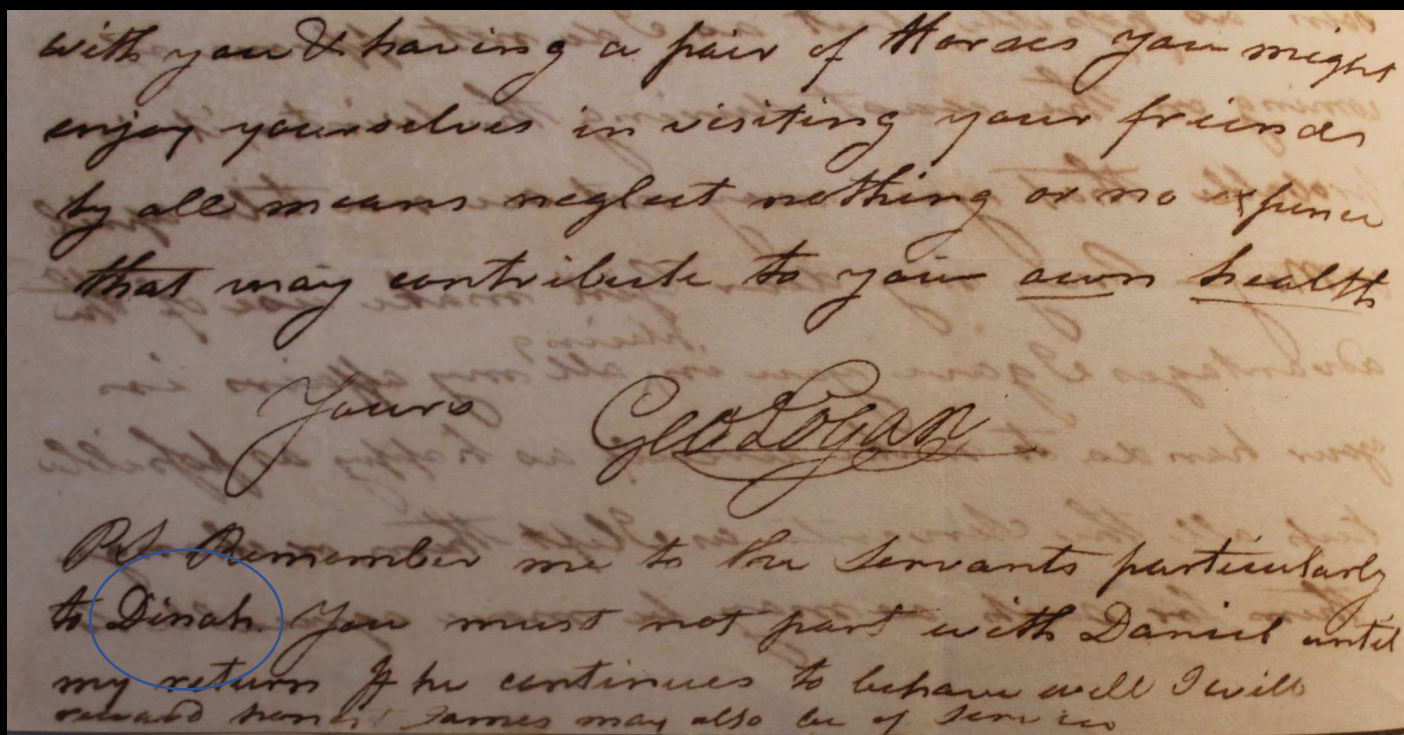 with you & having a pair of Horses you might
enjoy yourselves in visiting your friends
by all means neglect nothing or no expence
that may contribute to your own health
Yours Geo Logan
PS Remember me to the Servants particularly
to Dinah. You must not part with Daniel until
my return If he continues to behave well I will
reward James may also be of service